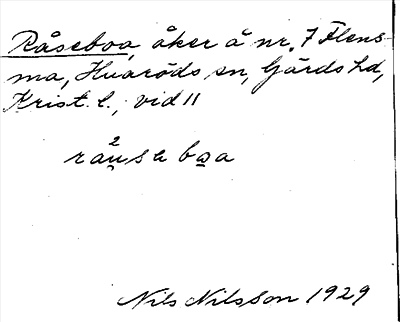 Råseboa, åker å nr. 7 Flens-
ma, Huaröds sn, Gärds hd,
Krist. l., vid 11
2
råu̯sa bo̲a
Nils Nilsson 1929